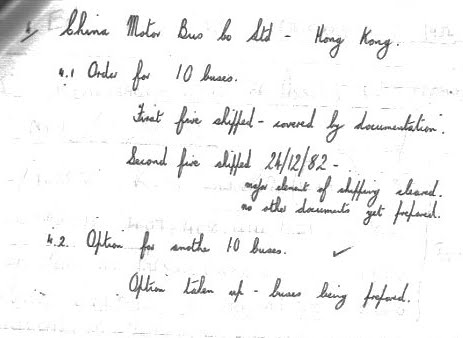 China Motor Bus Co Ltd - Hong Kong.
4.1 Order for 10 buses.
First five shipped - covered by documentation.
Second five shipped 24/12/82 -
major element of shipping cleared.
no other documents yet prepared.
4.2. Option for another 10 buses. ✓
Option taken up - buses being prepared.